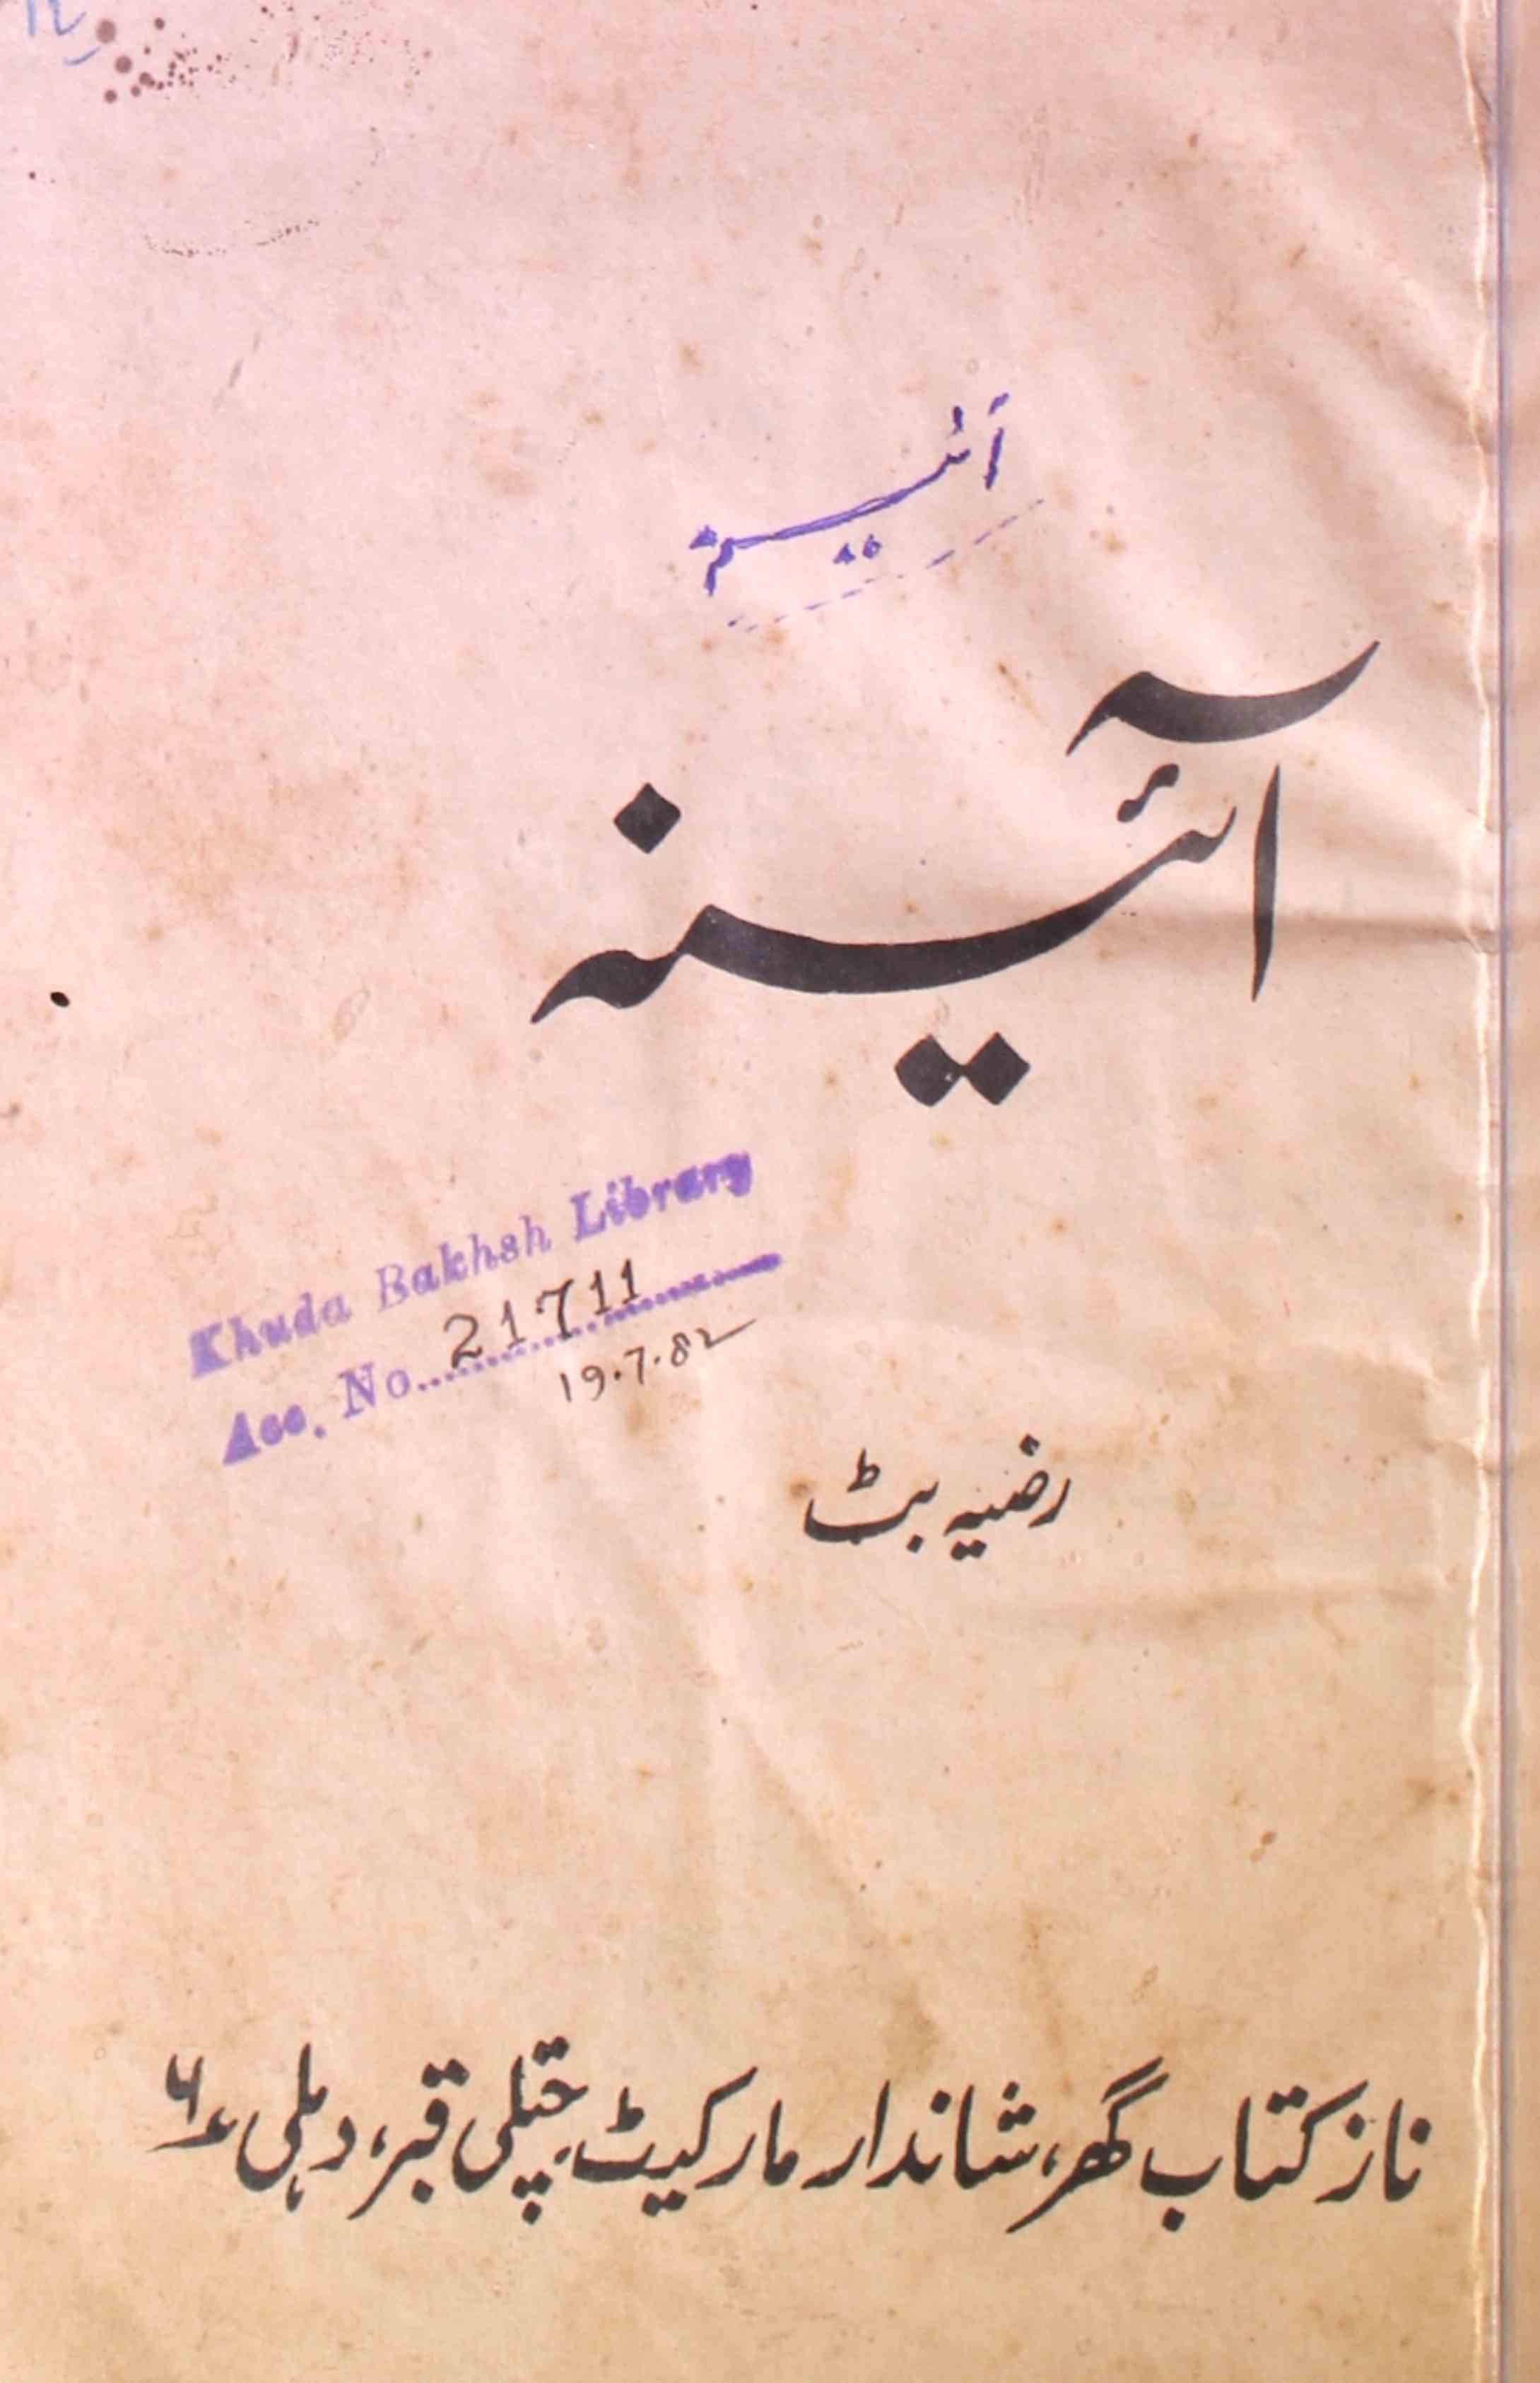 آئینہ
آئینہ
Khuda Bakhsh Library
Acc. No. 21711
19.7.82
رضیہ بٹ
ناز کتاب گھر، شاندار مارکیٹ، چتلی قبر، دہلی ۶